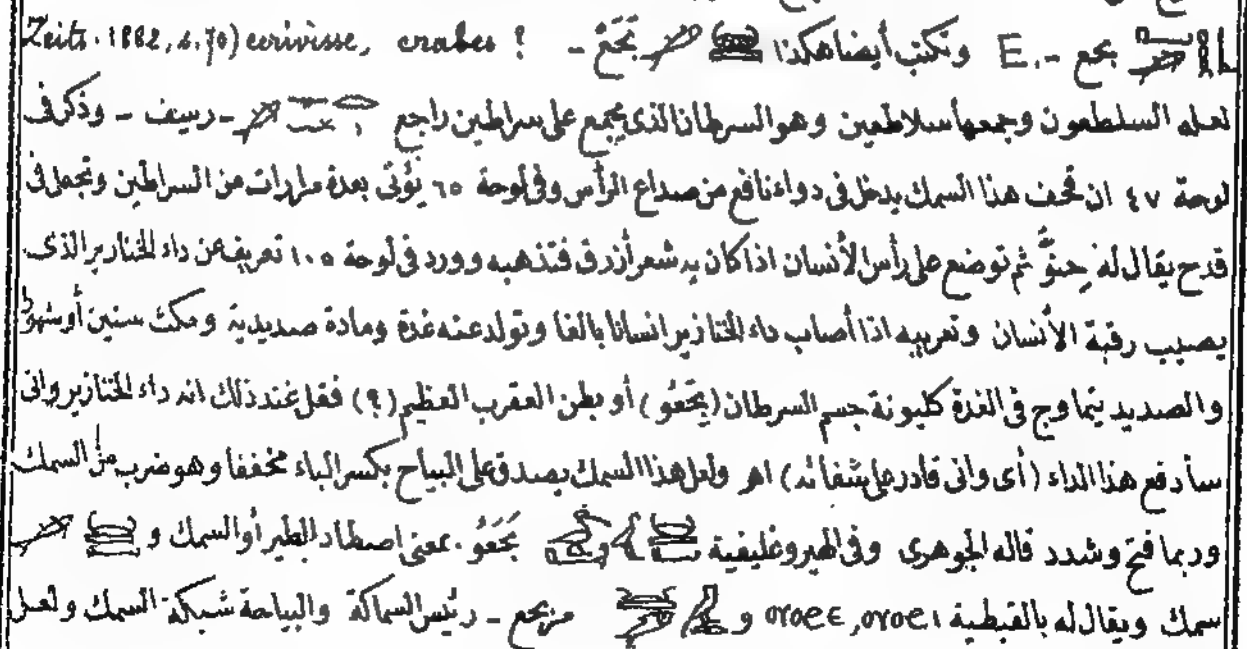 بحع - .E وتكتب أيضا هكذا بَحَعْ - ? Zeits. 1882, s. 70) ecrivisse, crabes
لعله السلطعون وجمعها سلاطعين وهو السرطان الذى يجمع على سراطين راجع - رسيف - وذكر فى
لوحة ٤٧ ان قحف هذا السمك يدخل فى دواء نافع من صداع الرأس وفى لوحة ٦٥ يؤتى بعدة مرارات من السراطين وتجعل فى
قدح يقال له حِنوّ ثم توضع على رأس الأنسان اذا كان به شعر أزرق فتذهبه وورد فى لوحة ١٠٥ تعريف عن داء الخنازير الذى
يصيب رقبة الأنسان وتعريبه اذا أصاب داء الخنازير انسانا بالغا وتولد عنه غدة ومادة صديدية ومكث سنين أو شهورا
والصديد يتماوج فى الغدة كليونة جسم السرطان (بِحَعُو) أو بطن العقرب العظيم (؟) فقل عند ذلك انه داء الخنازير وانى
سأدفع هذا الداء (أى وانى قادر على شفائه) اهـ ولعل هذا السمك يصدق على البياح بكسر الباء مخففا وهو ضرب من السمك
وربما فتح وشدد قاله الجوهرى وفى الهيروغليفية بَحَعُو. بمعنى اصطاد الطير أو السمك و
سمك ويقال له بالقبطية ⲟⲩⲟϩⲉ, ⲟⲩⲟϩⲓ و - رئيس السماكة والبياحة شبكة السمك ولعل